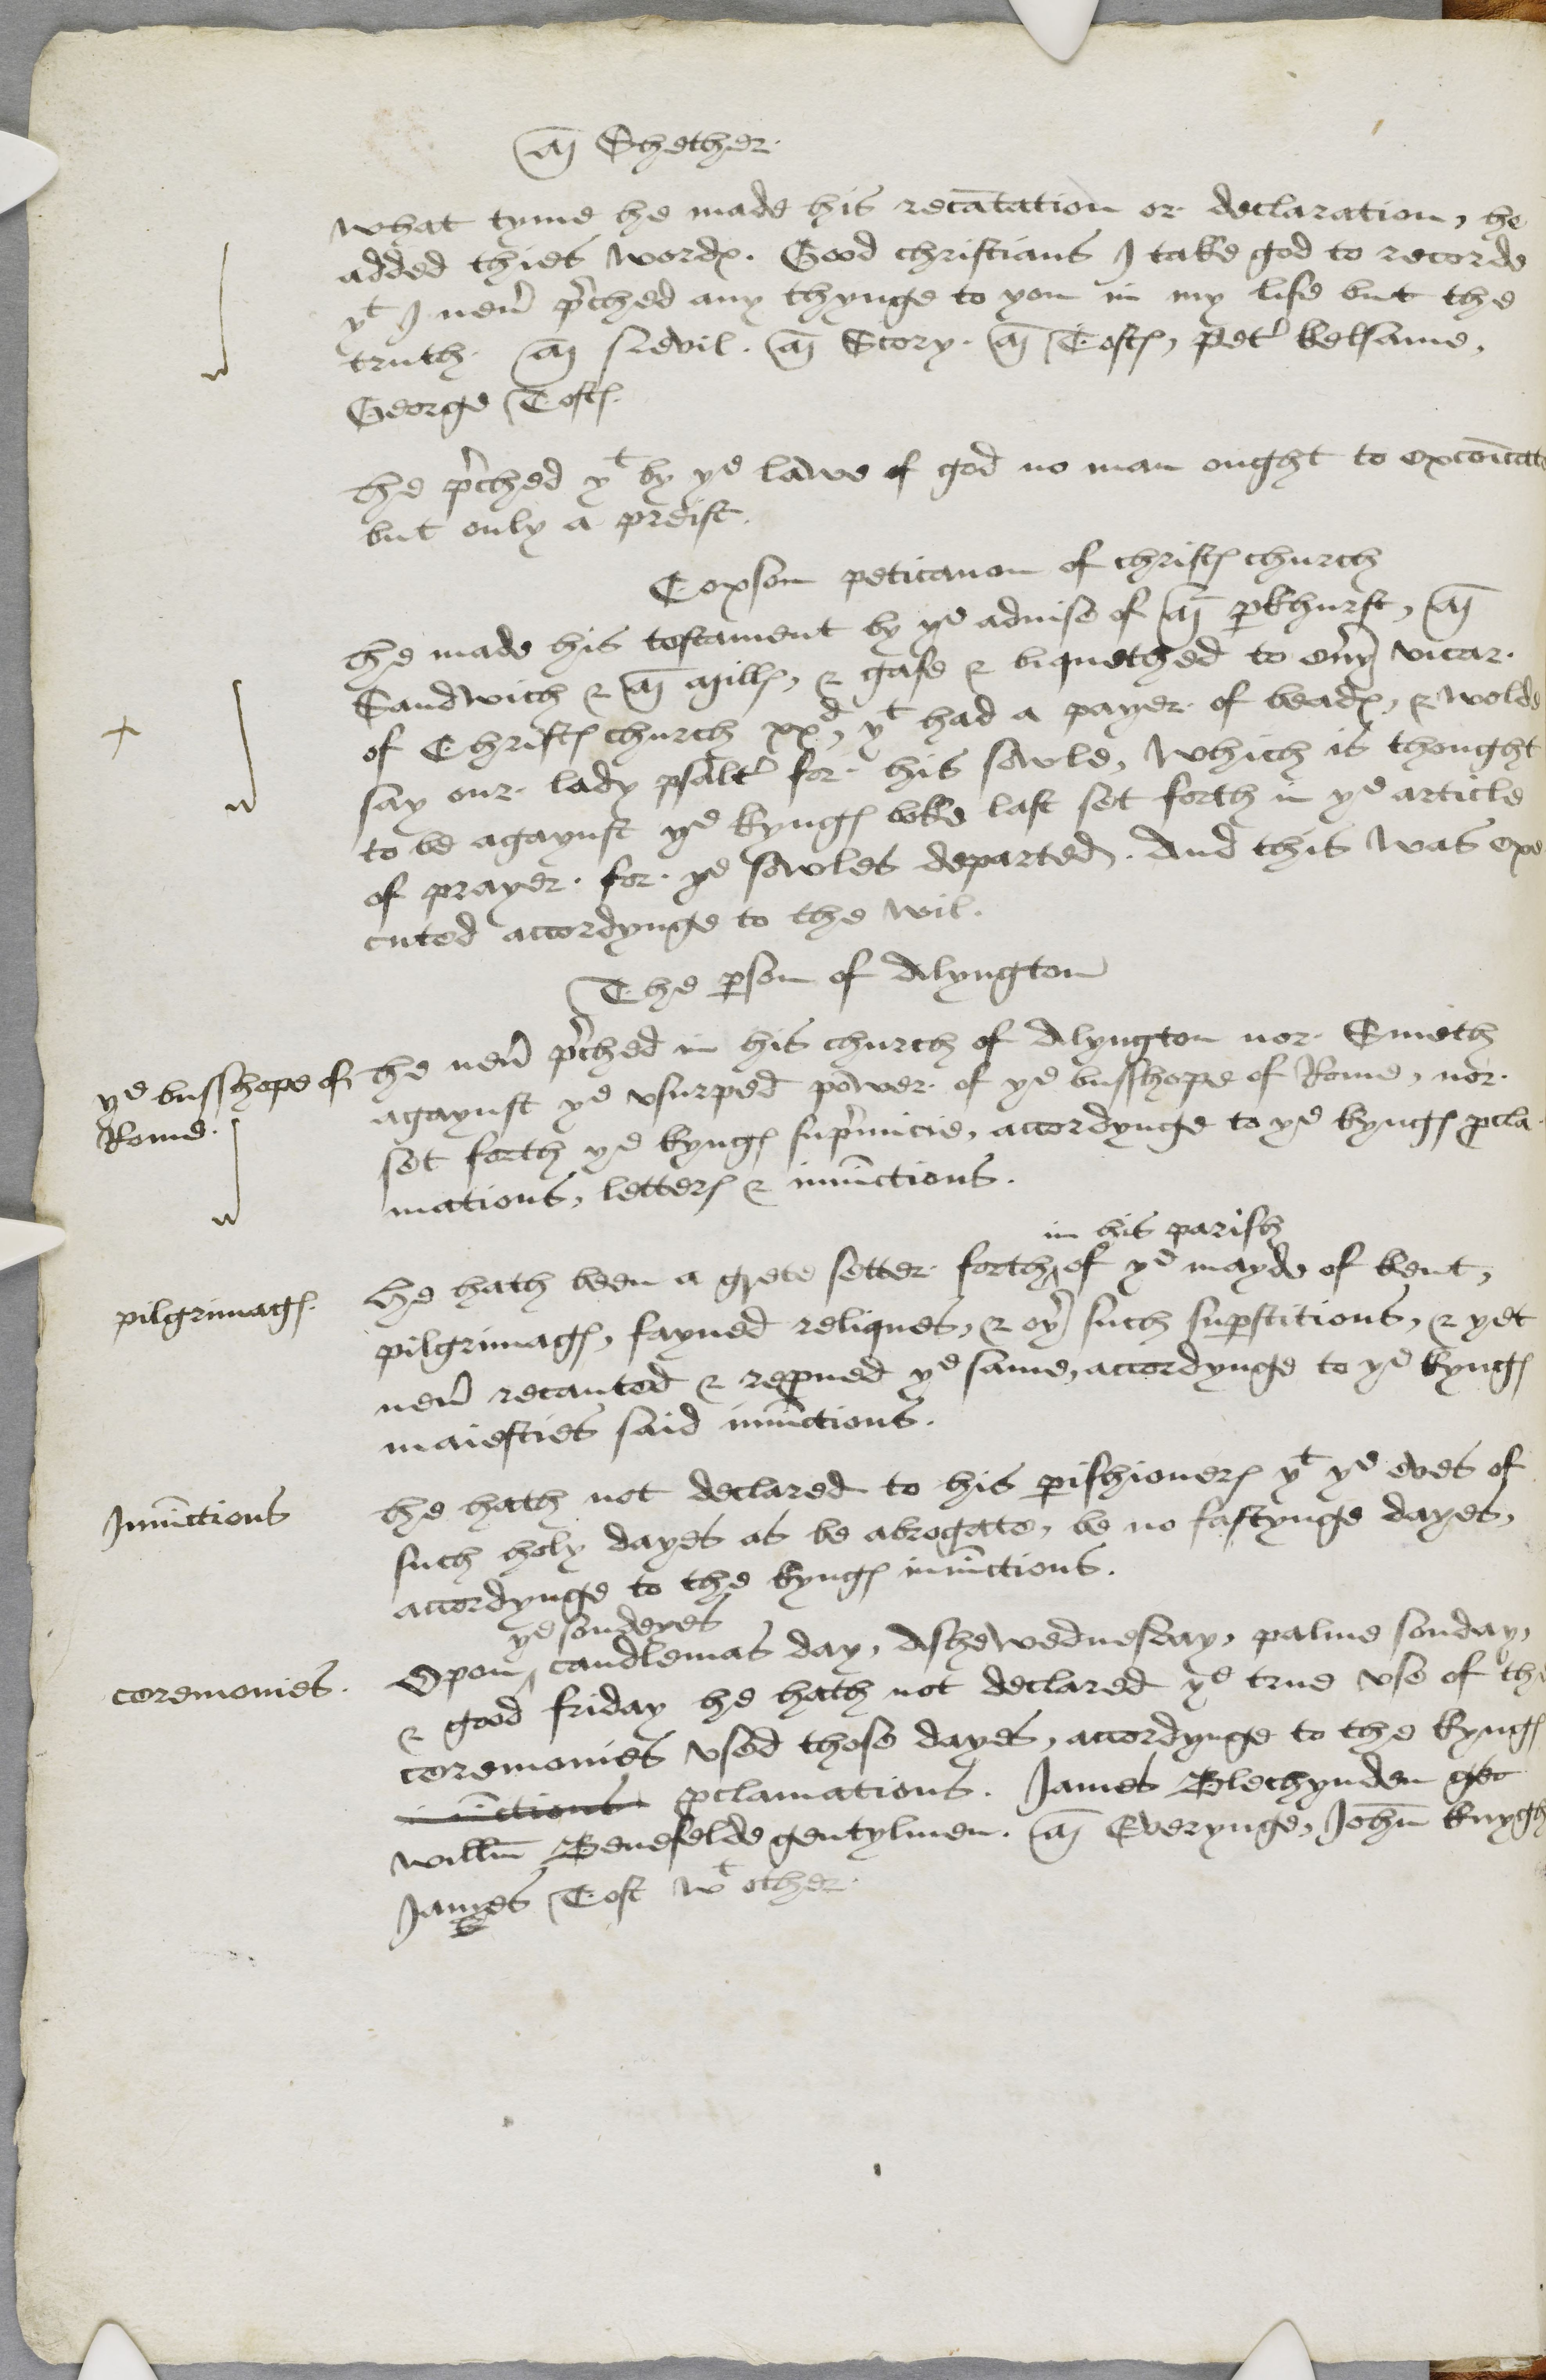 M Shether.
What tyme he made his recātation or declaration, he
added thies wordꝭ. Good christians I take god to recorde
yt I neu̓ p̓ched any thynge to you in my life but the
truth. M Sevil. M Story. M Toftꝭ, Pet̓ kelsame,
George Toftꝭ.
he p̓ched yt by ye lawe of god no man ought to excōīcate
but only a preist.
Coxson peticanon of christꝭ church
he made his testament by ye aduise of M ꝑkhurst, M
Sandwich & M Millꝭ, & gafe & biquethed to eu̓y vicar
of Christꝭ church xxd, yt had a payer of beadꝭ, & wolde
say our lady psalt̓ for his sowle, which is thought
to be agaynst ye kyngꝭ boke last set forth in ye article
of prayer for ye sowles departed. And this was exe
cuted accordynge to the wil.
The ꝑson of Alyngton
ye busshope of
Rome.
he neu̓ p̓ched in his church of Alyngton nor Smeth
agaynst ye vsurped power of ye busshope of Rome, nor
set forth ye kyngꝭ sup̓micie, accordynge to ye kyngꝭ ꝓcla
mations, letterꝭ & iniūctions.
in his parish
pilgrimagꝭ.
he hath been a grete setter forth of ye mayde of kent,
pilgrimagꝭ, fayned reliques, & oy̓ such suꝑstitions, & yet
neu̓ recanted & repꝛued ye same, accordynge to ye kyngꝭ
maiesties said iniūctions.
Iniūctions
he hath not declared to his ꝑishionerꝭ yt ye eves of
such holy dayes as be abrogate, be no fastynge dayes,
accordynge to the kyngꝭ iniūctions.
ye sondeyes
ceremonies.
Vpon candlemas day, Ashewednesday, palme sonday,
& good friday he hath not declared ye true vse of the
ceremonies vsed those dayes, accordynge to the kyngꝭ
iniūctions ꝓclamations. James Blechynden ge
willm̄ Benefelde gentylmen. M Everynge, Joh̄n knygh
James Toft wt other.